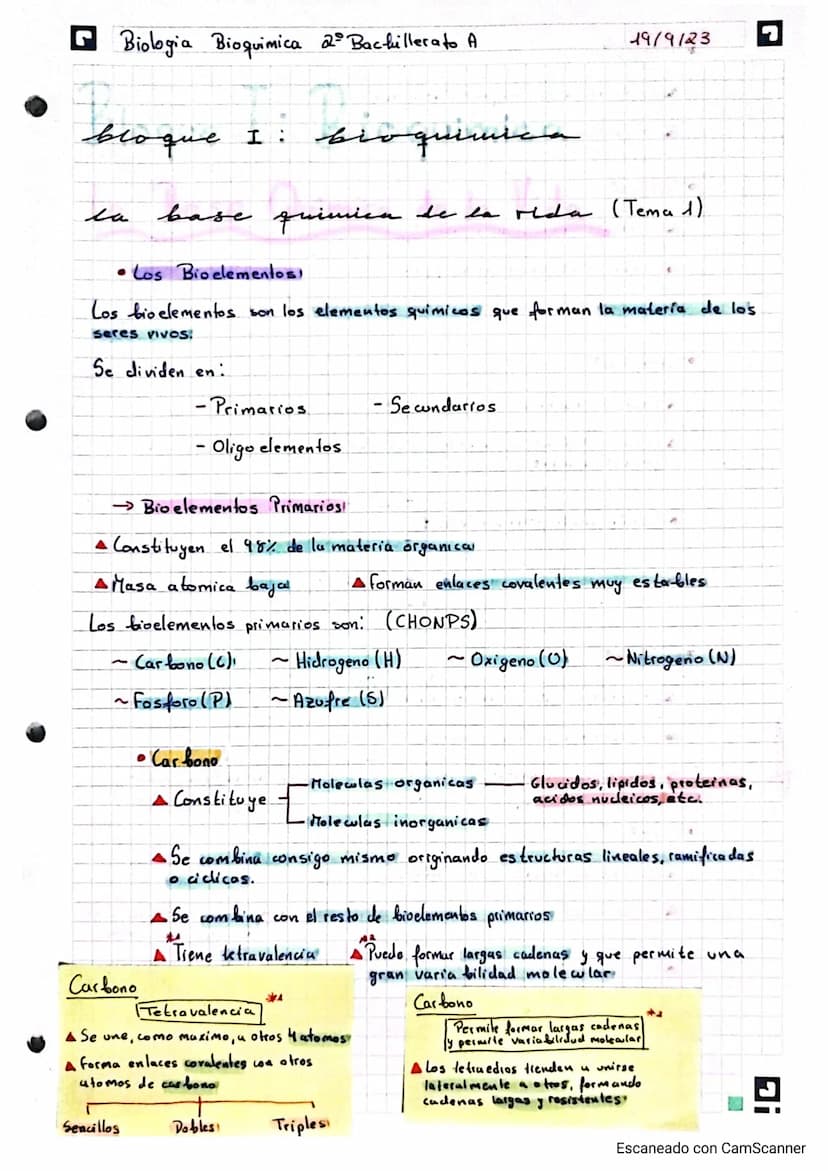 Biologia Bioquimica 2º Bachillerato A 19/9/23
Bloque I: Bioquimica
La base quimica de la vida (Tema 1)
• Los Bioelementos:
Los bioelementos son los elementos quimicos que forman la materia de los
seres vivos.
Se dividen en:
- Primarios - Secundarios
- Oligo elementos
→ Bioelementos Primarios:
▲ Constituyen el 98% de la materia organica
▲ Masa atomica baja ▲ Forman enlaces covalentes muy estables
Los bioelementos primarios son: (CHONPS)
~ Carbono (C) ~ Hidrogeno (H) ~ Oxigeno (O) ~ Nitrogeno (N)
~ Fosforo (P) ~ Azufre (S)
• Carbono
▲ Constituye
Moleculas organicas — Glucidos, lipidos, proteinas,
acidos nucleicos, etc.
Moleculas inorganicas
▲ Se combina consigo mismo originando estructuras lineales, ramificadas
o ciclicas.
▲ Se combina con el resto de bioelementos primarios
▲ Tiene tetravalencia ▲ Puede formar largas cadenas y que permite una
gran varia bilidad molecular
Carbono
*1
Tetravalencia
▲ Se une, como maximo, a otros 4 atomos
▲ Forma enlaces covalentes con otros
atomos de carbono
Sencillos Dobles Triples
Carbono
Permite formar largas cadenas
y permite variabilidad molecular
▲ Los tetraedios tienden a unirse
lateralmente a otros, formando
cadenas largas y resistentes
Escaneado con CamScanner